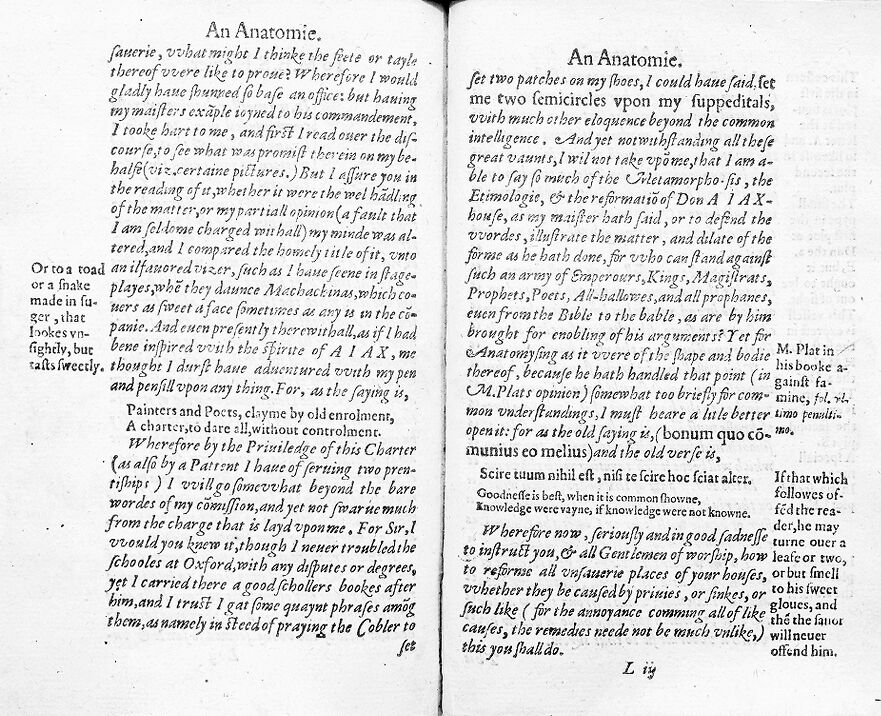 An Anatomie.
ſauerie, vvhat might I thinke the feete or tayle
thereof vvere like to proue? Wherefore I would
gladly haue ſhunned ſo baſe an office: but hauing
my maiſters exāple ioyned to his commandement,
I tooke hart to me, and firſt I read ouer the diſ-
courſe, to ſee what was promiſt therein on my be-
halfe (viz. certaine pictures.) But I aſſure you in
the reading of it, whether it were the wel hādling
of the matter, or my partiall opinion (a fault that
I am ſeldome charged withall) my minde was al-
tered, and I compared the homely title of it, vnto
an ilfauored vizer, ſuch as I haue ſeene in ſtage-
playes, whē they daunce Machackinas, which co-
uers as ſweet a face ſometimes as any is in the cō-
panie. And euen preſently therewithall, as if I had
bene inſpired vvith the ſpirite of A I A X, me
thought I durſt haue aduentured vvith my pen
and penſill vpon any thing. For, as the ſaying is,
Painters and Poets, clayme by old enrolment,
A charter, to dare all, without controlment.
Wherefore by the Priuiledge of this Charter
(as alſo by a Pattent I haue of ſeruing two pren-
tiſhips) I vvill go ſomevvhat beyond the bare
wordes of my cōmiſſion, and yet not ſwarue much
from the charge that is layd vpon me. For Sir, I
vvould you knew it, though I neuer troubled the
ſchooles at Oxford, with any diſputes or degrees,
yet I carried there a good ſchollers bookes after
him, and I truſt I gat ſome quaynt phraſes amōg
them, as namely in ſteed of praying the Cobler to
ſet
Or to a toad
or a ſnake
made in ſu-
ger, that
lookes vn-
ſightely, but
taſts ſweetly.
An Anatomie.
ſet two patches on my ſhoes, I could haue ſaid, ſet
me two ſemicircles vpon my ſuppeditals,
vvith much other eloquence beyond the common
intelligence. And yet notwithſtanding all theſe
great vaunts, I wil not take vpō me, that I am a-
ble to ſay ſo much of the Metamorpho-ſis, the
Etimologie, & the reformatiō of Don A I A X-
houſe, as my maiſter hath ſaid, or to defend the
vvordes, illuſtrate the matter, and dilate of the
forme as he hath done, for vvho can ſtand againſt
ſuch an army of Emperours, Kings, Magiſtrats,
Prophets, Poets, All-hallowes, and all prophanes,
euen from the Bible to the bable, as are by him
brought for enobling of his arguments? Yet for
Anatomyſing as it vvere of the ſhape and bodie
thereof, becauſe he hath handled that point (in
M. Plats opinion) ſomewhat too briefly for com-
mon vnderſtandings, I muſt heare a litle better
open it: for as the old ſaying is, (bonum quo cō-
munius eo melius) and the old verſe is,
Scire tuum nihil eſt, niſi te ſcire hoc ſciat alter.
Goodneſſe is beſt, when it is common ſhowne,
Knowledge were vayne, if knowledge were not knowne.
Wherefore now, ſeriouſly and in good ſadneſſe
to inſtruct you, & all Gentlemen of worſhip, how
to reforme all vnſauerie places of your houſes,
vvhether they be cauſed by priuies, or ſinkes, or
ſuch like (for the annoyance comming all of like
cauſes, the remedies neede not be much vnlike,)
this you ſhall do.
L iij
M. Plat in
his booke a-
gainſt fa-
mine, fol. vl-
timo penulti-
mo.
If that which
followes of-
fēd the rea-
der, he may
turne ouer a
leafe or two,
or but ſmell
to his ſweet
gloues, and
thē the ſauor
will neuer
offend him.